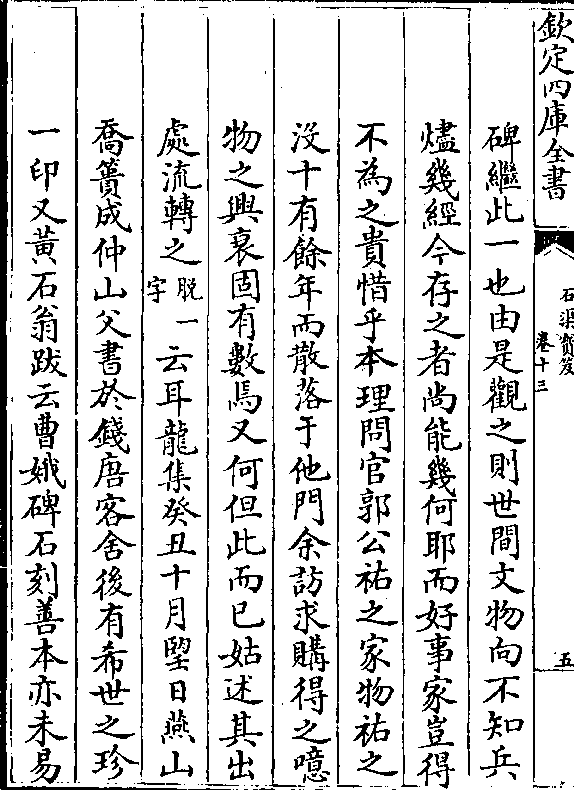 欽定四庫全書
石渠寳笈
卷十三
五
碑繼此一也由是觀之則世間文物向不知兵
燼幾經今存之者尚能幾何耶而好事家豈得
不為之貴惜乎本理問官郭公祐之家物祐之
没十有餘年而散落于他門余訪求購得之噫
物之興衰固有數焉又何但此而已姑述其出
處流轉之脱一字云耳龍集癸丑十月朢日燕山
喬簣成仲山父書於錢唐客舍後有希世之珍
一印又黄石翁跋云曹娥碑石刻善本亦未易